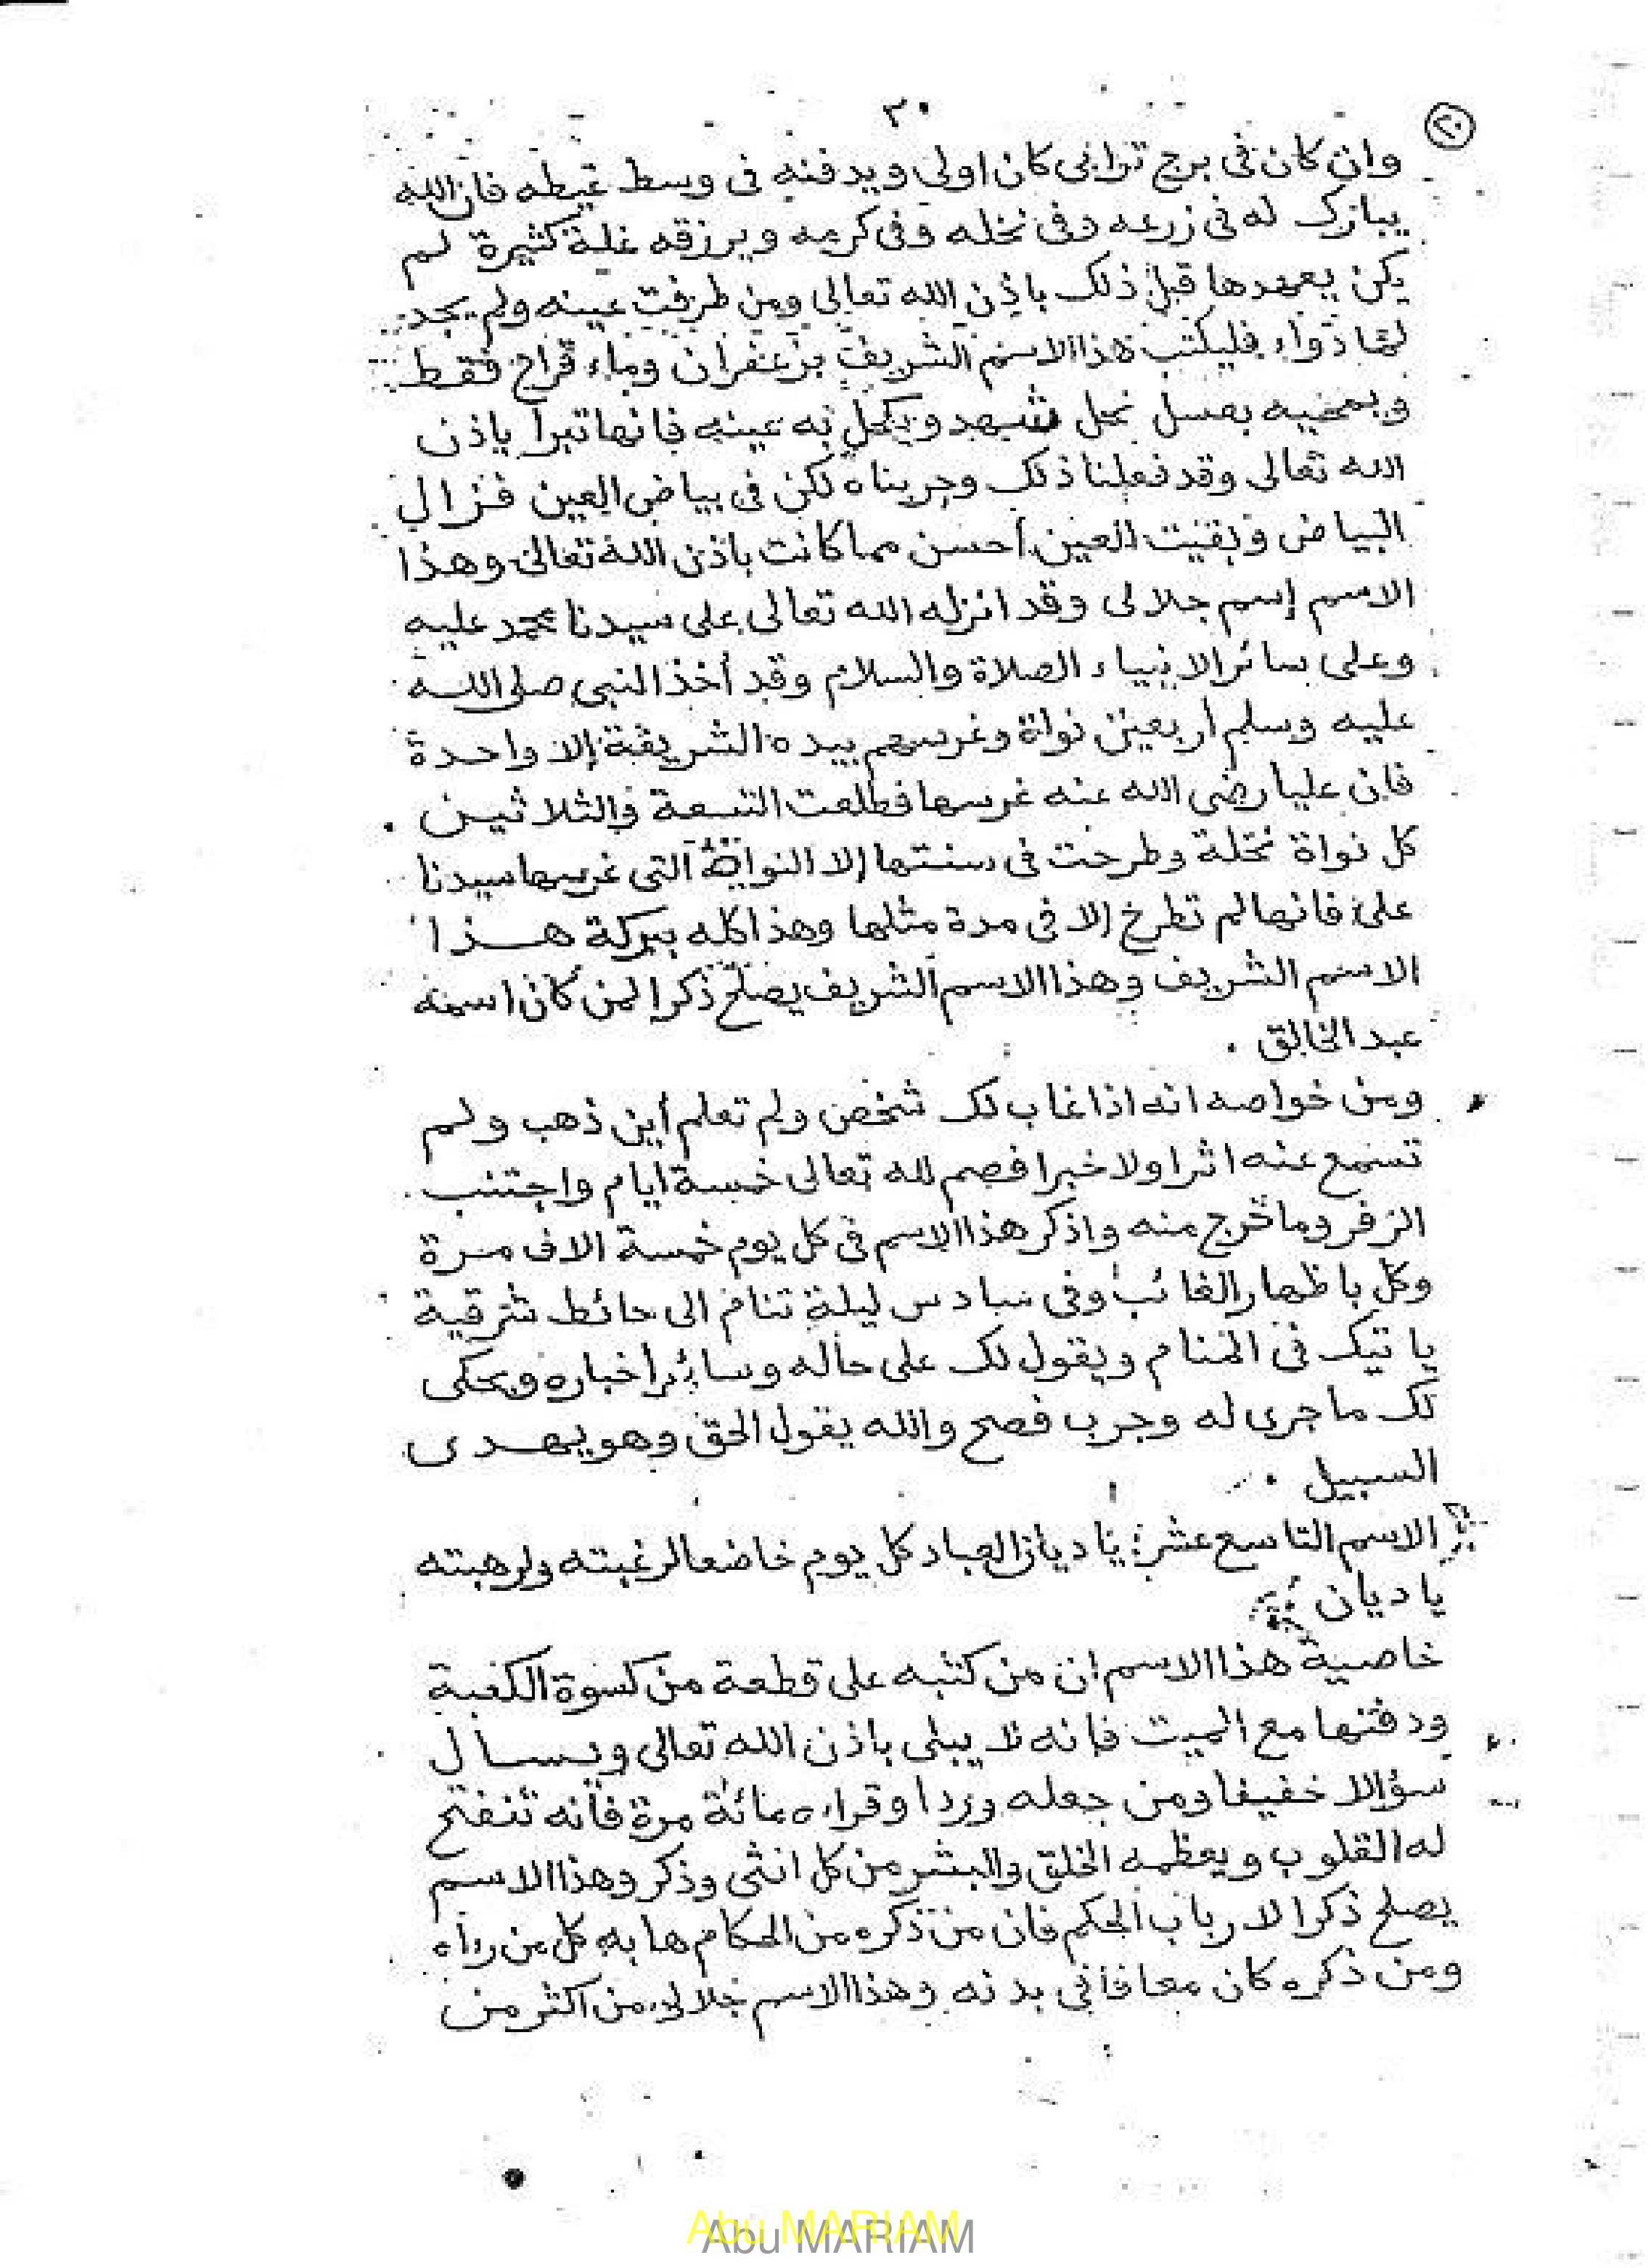 ٣٠
٢٠
وان كان فى برج ترابى كان اولى ويدفنه فى وسط غيطه فان الله
يبارك له فى زرعه وفى نخله وفى كرمه ويرزقه غلة كثيرة لم
يكن يعهدها قبل ذلك باذن الله تعالى ومن طرفت عينه ولم يجد
لها دواء فليكتب هذا الاسم الشريف بزعفران وماء قراح فقط
ويمحيه بعسل نحل شهد ويكحل به عينه فانها تبرأ باذن
الله تعالى وقد فعلنا ذلك وجربناه لكن فى بياض العين فزال
البياض وبقيت العين أحسن مما كانت باذن الله تعالى وهذا
الاسم إسم جلالى وقد انزله الله تعالى على سيدنا محمد عليه
وعلى سائر الانبياء الصلاة والسلام وقد أخذ النبى صلى الله
عليه وسلم أربعين نواة وغرسهم بيده الشريفة إلا واحدة
فان عليا رضى الله عنه غرسها فطلعت التسعة والثلاثين .
كل نواة نخلة وطرحت فى سنتها إلا النواة التى غرسها سيدنا
على فانها لم تطرح إلا فى مدة مثلها وهذا كله ببركة هذا
الاسم الشريف وهذا الاسم الشريف يصلح ذكرا لمن كان اسمه
عبد الخالق .
ومن خواصه انه اذا غاب لك شخص ولم تعلم أين ذهب ولم
تسمع عنه اثرا ولا خبرا فصم لله تعالى خمسة ايام واجتنب
الزفر وما خرج منه واذكر هذا الاسم فى كل يوم خمسة الاف مرة
وكل باظهار الغائب وفى سادس ليلة تنام الى حائط شرقية
ياتيك فى المنام ويقول لك على حاله وسائر أخباره ويحكى
لك ما جرى له وجرب فصح والله يقول الحق وهو يهدى
السبيل .
الاسم التاسع عشر : يا ديان العباد كل يوم خاضعا لرغبته ولرهبته
يا ديان
خاصية هذا الاسم ان من كتبه على قطعة من كسوة الكعبة
ودفنها مع الميت فانه لا يبلى باذن الله تعالى ويسال
سؤالا خفيفا ومن جعله وردا وقراه مائة مرة فانه تنفتح
له القلوب ويعظمه الخلق والبشر من كل انثى وذكر وهذا الاسم
يصلح ذكرا لارباب الحكم فان من ذكره من الحكام هابه كل من رآه
ومن ذكره كان معافا فى بدنه وهذا الاسم جلالى من اكثر من
Abu MARIAM